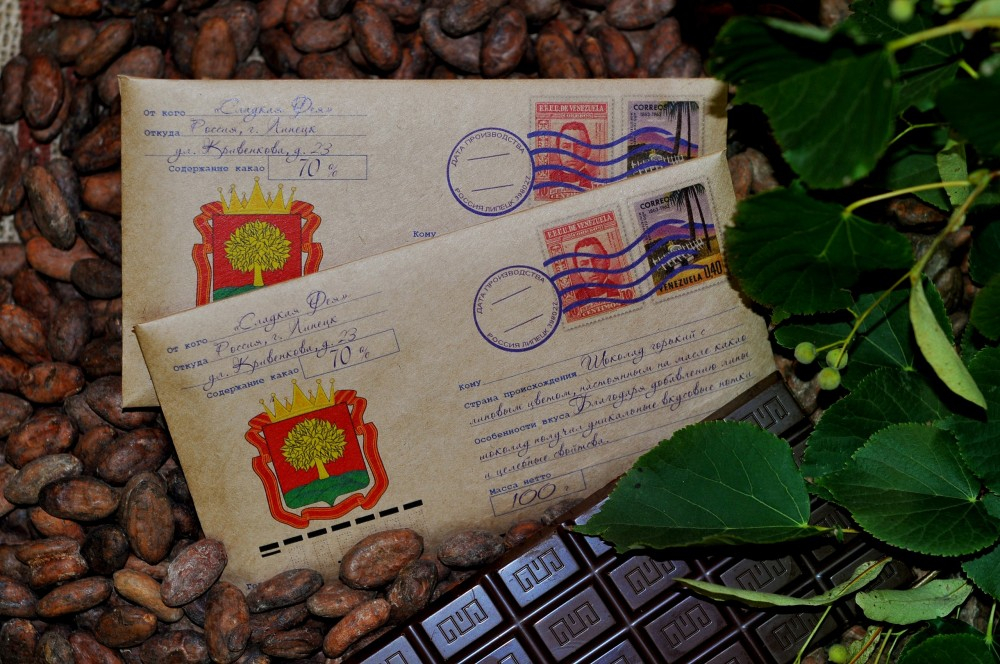 От кого «Сладкая Фея»
Откуда Россия, г. Липецк
ул. Кривенкова, д. 23
Содержание какао 70 %
ДАТА ПРОИЗВОДСТВА
РОССИЯ ЛИПЕЦК 398022
E.E.U.U. DE VENEZUELA
CORREOS
1863-1963
Кому
От кого «Сладкая Фея»
Откуда Россия, г. Липецк
ул. Кривенкова, д. 23
Содержание какао 70 %
ДАТА ПРОИЗВОДСТВА
РОССИЯ ЛИПЕЦК 398022
E.E.U.U. DE VENEZUELA
CENTIMOS
CORREOS
VENEZUELA 0,40
Кому Шоколад горький с
Страна происхождения
липовым цветом, настоянным на масле какао
Особенности вкуса Благодаря добавлению липы
шоколад получил уникальные вкусовые нотки
и целебные свойства.
Масса нетто
100 г